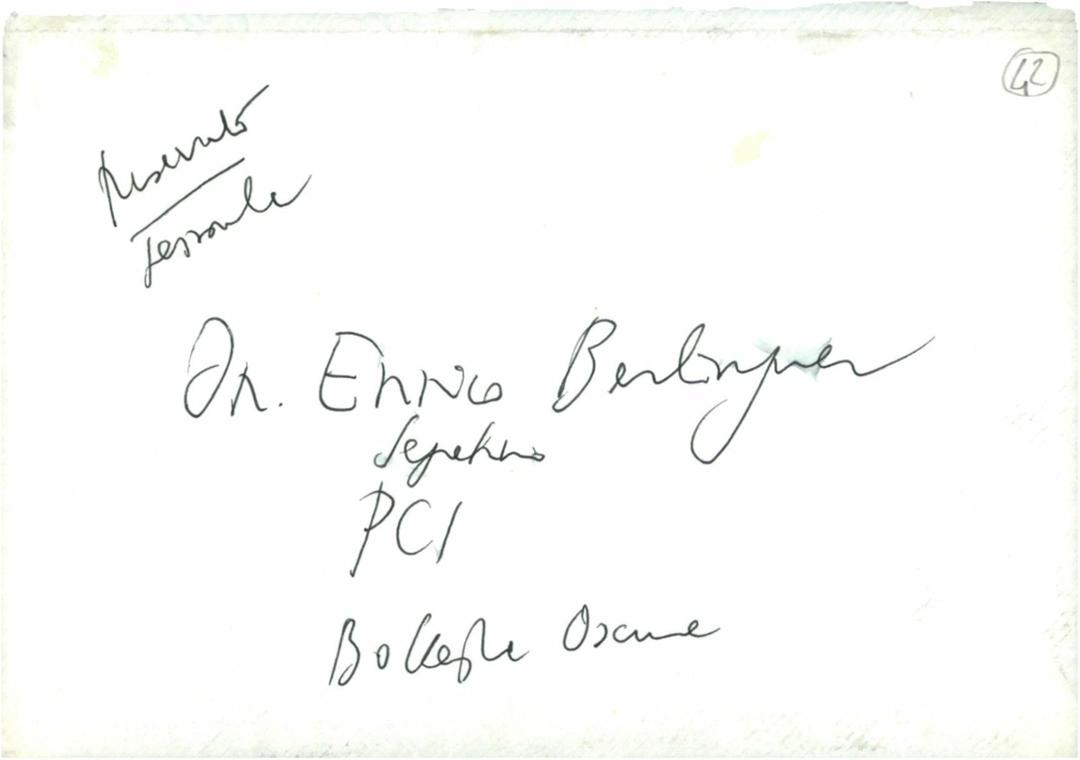 42
Riservato
Personale
On. Enrico Berlinguer
Segretario
PCI
Botteghe Oscure